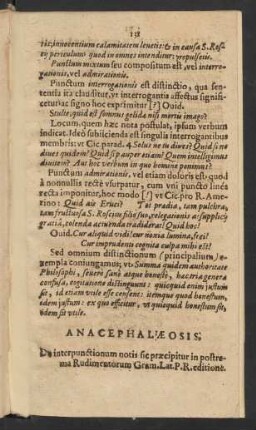 151
tis: innocentium calamitatem levetis: & in causa S. Ros-
cij periculum quod in omnes intenditur, propulsetis.
Punctum mixtum seu compositum est, vel interro-
gationis, vel admirationis.
Punctum interrogationis est distinctio, qua sen-
tentia ita clauditur, ut interrogantis affectus signifi-
cetur: ac signo hoc exprimitur [?] Ovid.
Stulte, quid est somnus gelida nisi mortis imago?
Locum, quem hæc nota postulat, ipsum verbum
indicat. Ideò subiicienda est singulis interrogantibus
membris: ut Cic. parad. 4. Solus ne tu dives? Quid si ne
dives quidem? Quid si pauper etiam? Quem intelligimus
divitem? Aut hoc verbum in quo homine ponimus?
Punctum admirationis, vel etiam doloris est: quod
à nonnullis rectè usurpatur, cum uni puncto lineà
recta imponitur, hoc modo [!] ut Cic. pro R. Ame-
rino: Quid ais Eruci? Tot prædia, tam pulchra,
tam fructuosa S. Roscium filio suo, relegationis ac supplicij
gratiâ, colenda ac tuenda tradiderat! Quid hoc!
Ovid. Cur aliquid vidi: cur noxia lumina, feci!
Cur imprudenti cognita culpa mihi est!
Sed omnium distinctionum (principalium) e-
xempla coniungamus, ut: Summa quidem authoritate
Philosophi, severè sanè atque honestè, hæc tria genera
confusa, cogitatione distinguunt: quicquid enim justum
sit, id etiam utile esse censent: itemque quod honestum,
idem justum: ex quo efficitur, ut quicquid honestum sit,
idem sit utile.
ANACEPHALÆOSIS.
De interpunctionum notis sic præcipitur in postre-
ma Rudimentorum Gram. Lat. P. R. editione.